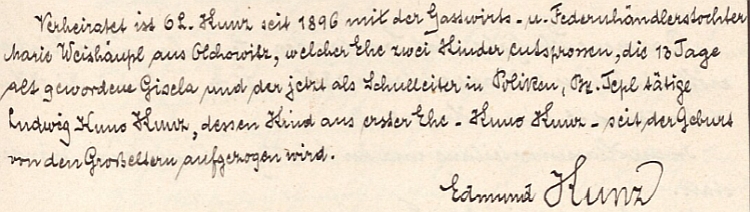 Verheiratet ist OL. Kunz seit 1896 mit der Gastwirts- u. Federnhändlerstochter
Marie Weishäupl aus Olchowitz, welcher Ehe zwei Kinder entsprossen, die 13 Tage
alt gewordene Gisela und der jetzt als Schulleiter in Poliken, Bz. Tepl tätige
Ludwig Kuno Kunz, dessen Kind aus erster Ehe - Kuno Kunz - seit der Geburt
von den Großeltern aufgezogen wird.
Edmund Kunz